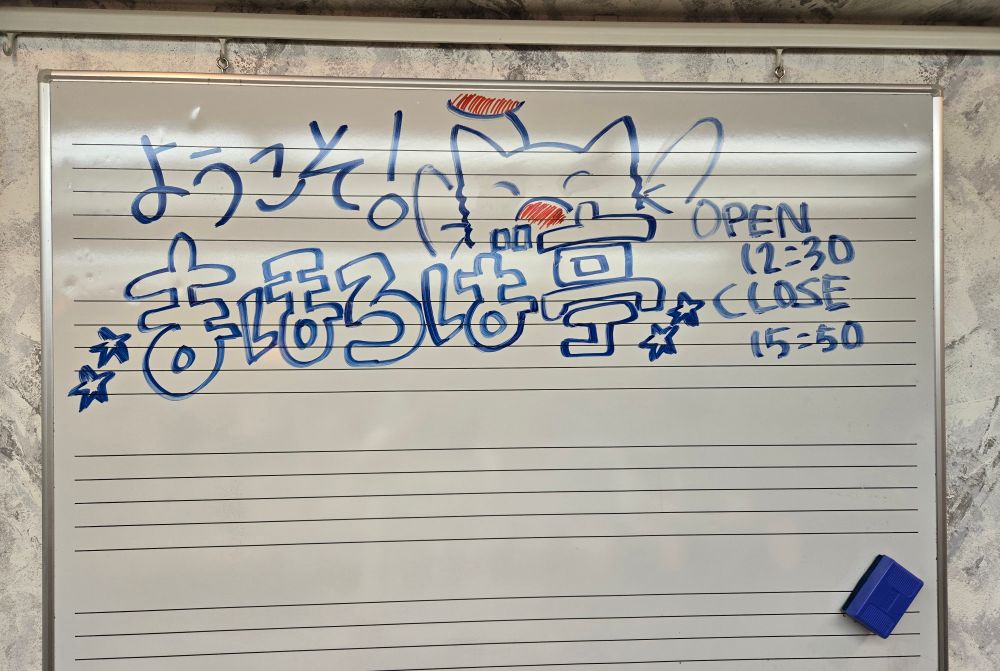 ようこそ!
まほろば亭
OPEN
12:30
CLOSE
15:50